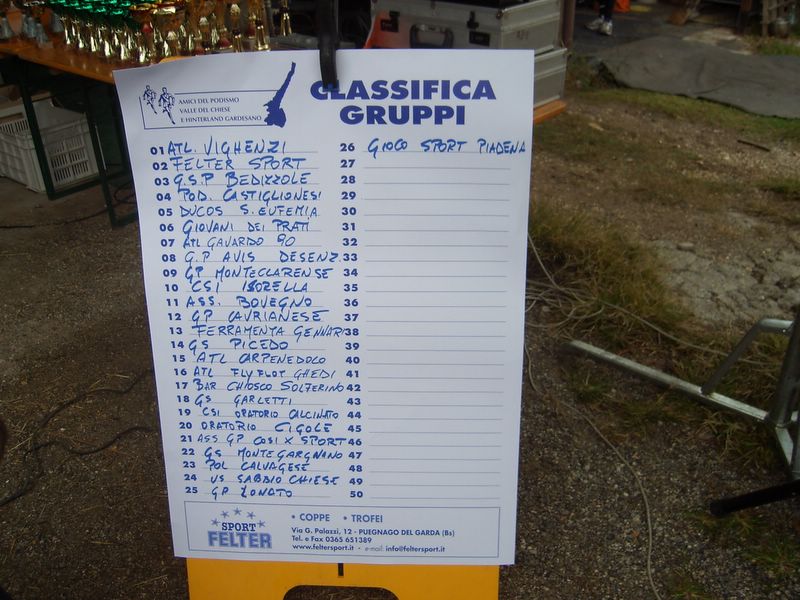 AMICI DEL PODISMO
VALLE DEL CHIESE
E HINTERLAND GARDESANO
CLASSIFICA
GRUPPI
01 ATL. VIGHENZI
02 FELTER SPORT
03 G.S.P BEDIZZOLE
04 POD. CASTIGLIONESI
05 DUCOS S. EUFEMIA
06 GIOVANI DEI PRATI
07 ATL GAVARDO 90
08 G.P AVIS DESENZ.
09 GP MONTECLARENSE
10 CSI ISORELLA
11 ASS. BOVEGNO
12 GP CAVRIANESE
13 FERRAMENTA GENNARI
14 GS PICEDO
15 ATL CARPENEDOLO
16 ATL FLY FLOT GHEDI
17 BAR CHIOSCO SOLFERINO
18 GS GARLETTI
19 CSI ORATORIO CALCINATO
20 ORATORIO CIGOLE
21 ASS GP COSI X SPORT
22 GS MONTEGARGNANO
23 POL CALVAGESE
24 US SABBIO CHIESE
25 GP LONATO
26 GIOCO SPORT PIADENA
27
28
29
30
31
32
33
34
35
36
37
38
39
40
41
42
43
44
45
46
47
48
49
50
SPORT
FELTER
• COPPE • TROFEI
Via G. Palazzi, 12 - PUEGNAGO DEL GARDA (Bs)
Tel. e Fax 0365 651389
www.feltersport.it - e-mail: info@feltersport.it